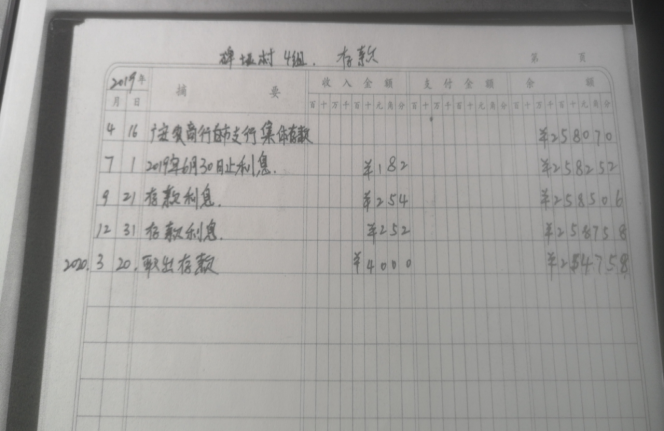 碑垭村 4组. 存款
第 页
2019年 摘 要 收入金额 支付金额 余 额
月 日 百十万千百十元角分 百十万千百十元角分 百十万千百十元角分
4 16 广安农商行白市支行集体存款 ¥258070
7 1 2019年6月30日止利息. ¥182 ¥258252
9 21 存款利息. ¥254 ¥258506
12 31 存款利息. ¥252 ¥258758
2020. 3 20. 取出存款 ¥4000 ¥254758